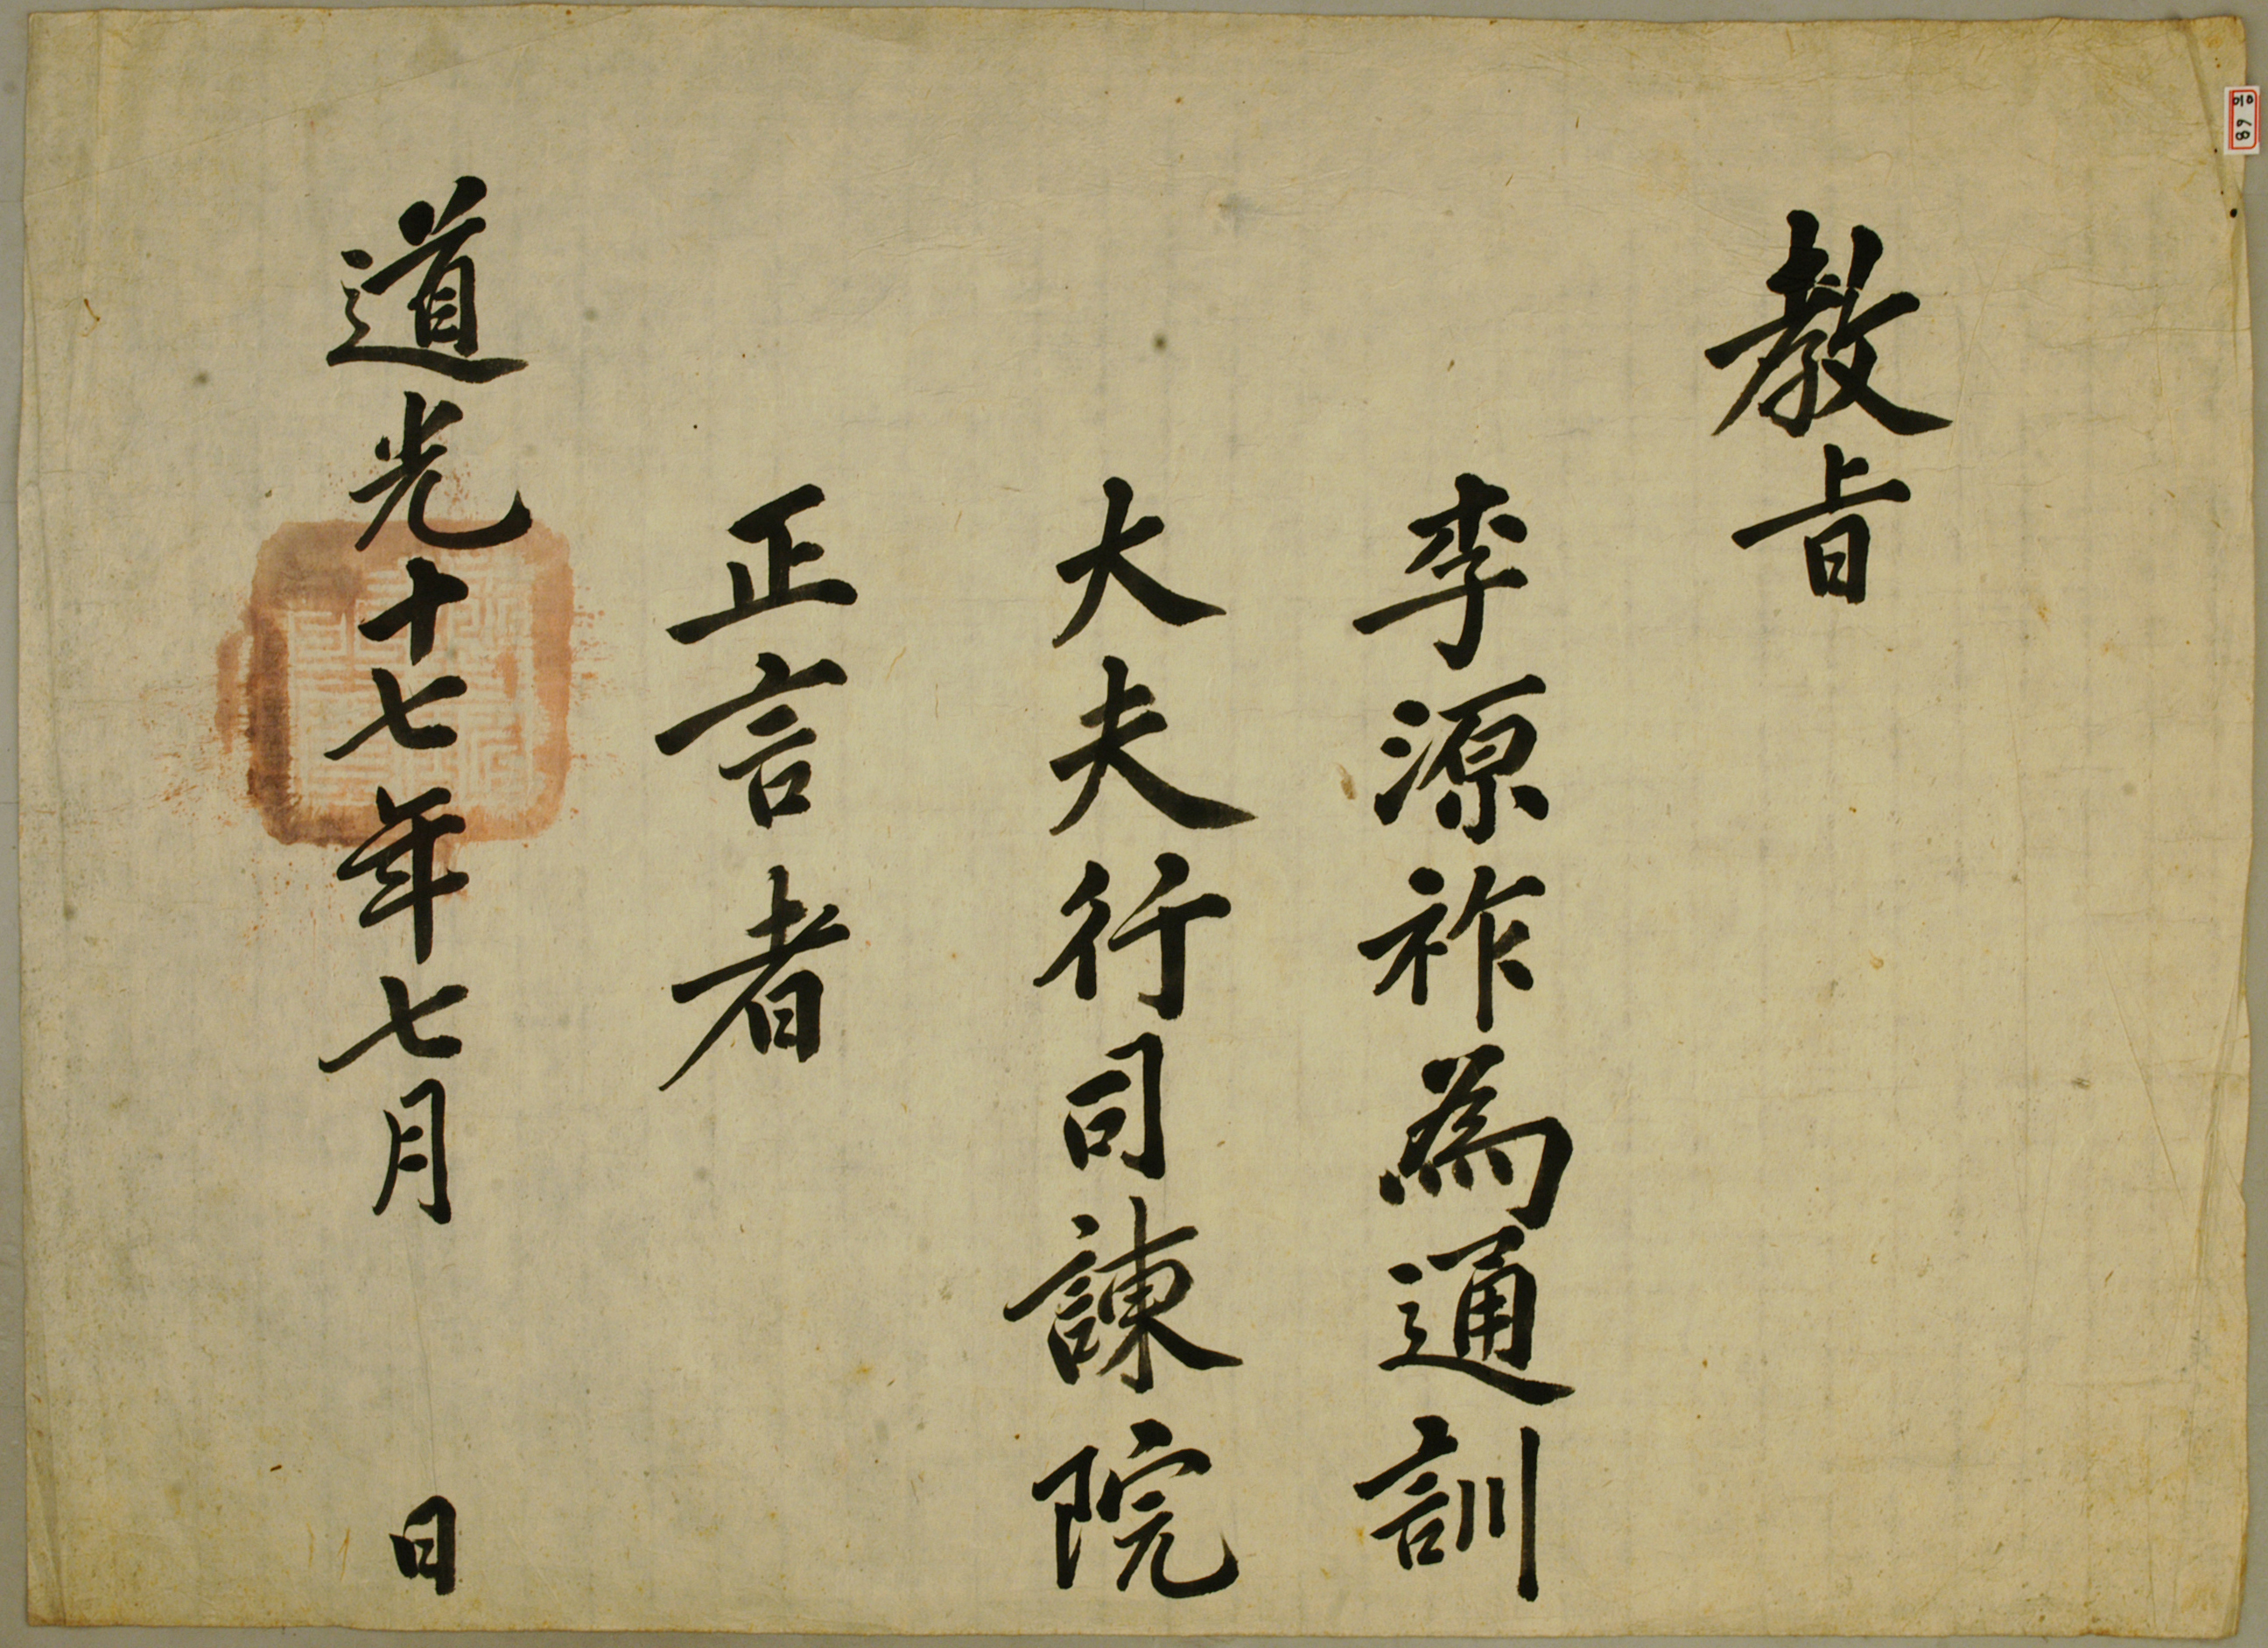 教旨
李源祚為通訓
大夫行司諫院
正言者
道光十七年七月 日
68